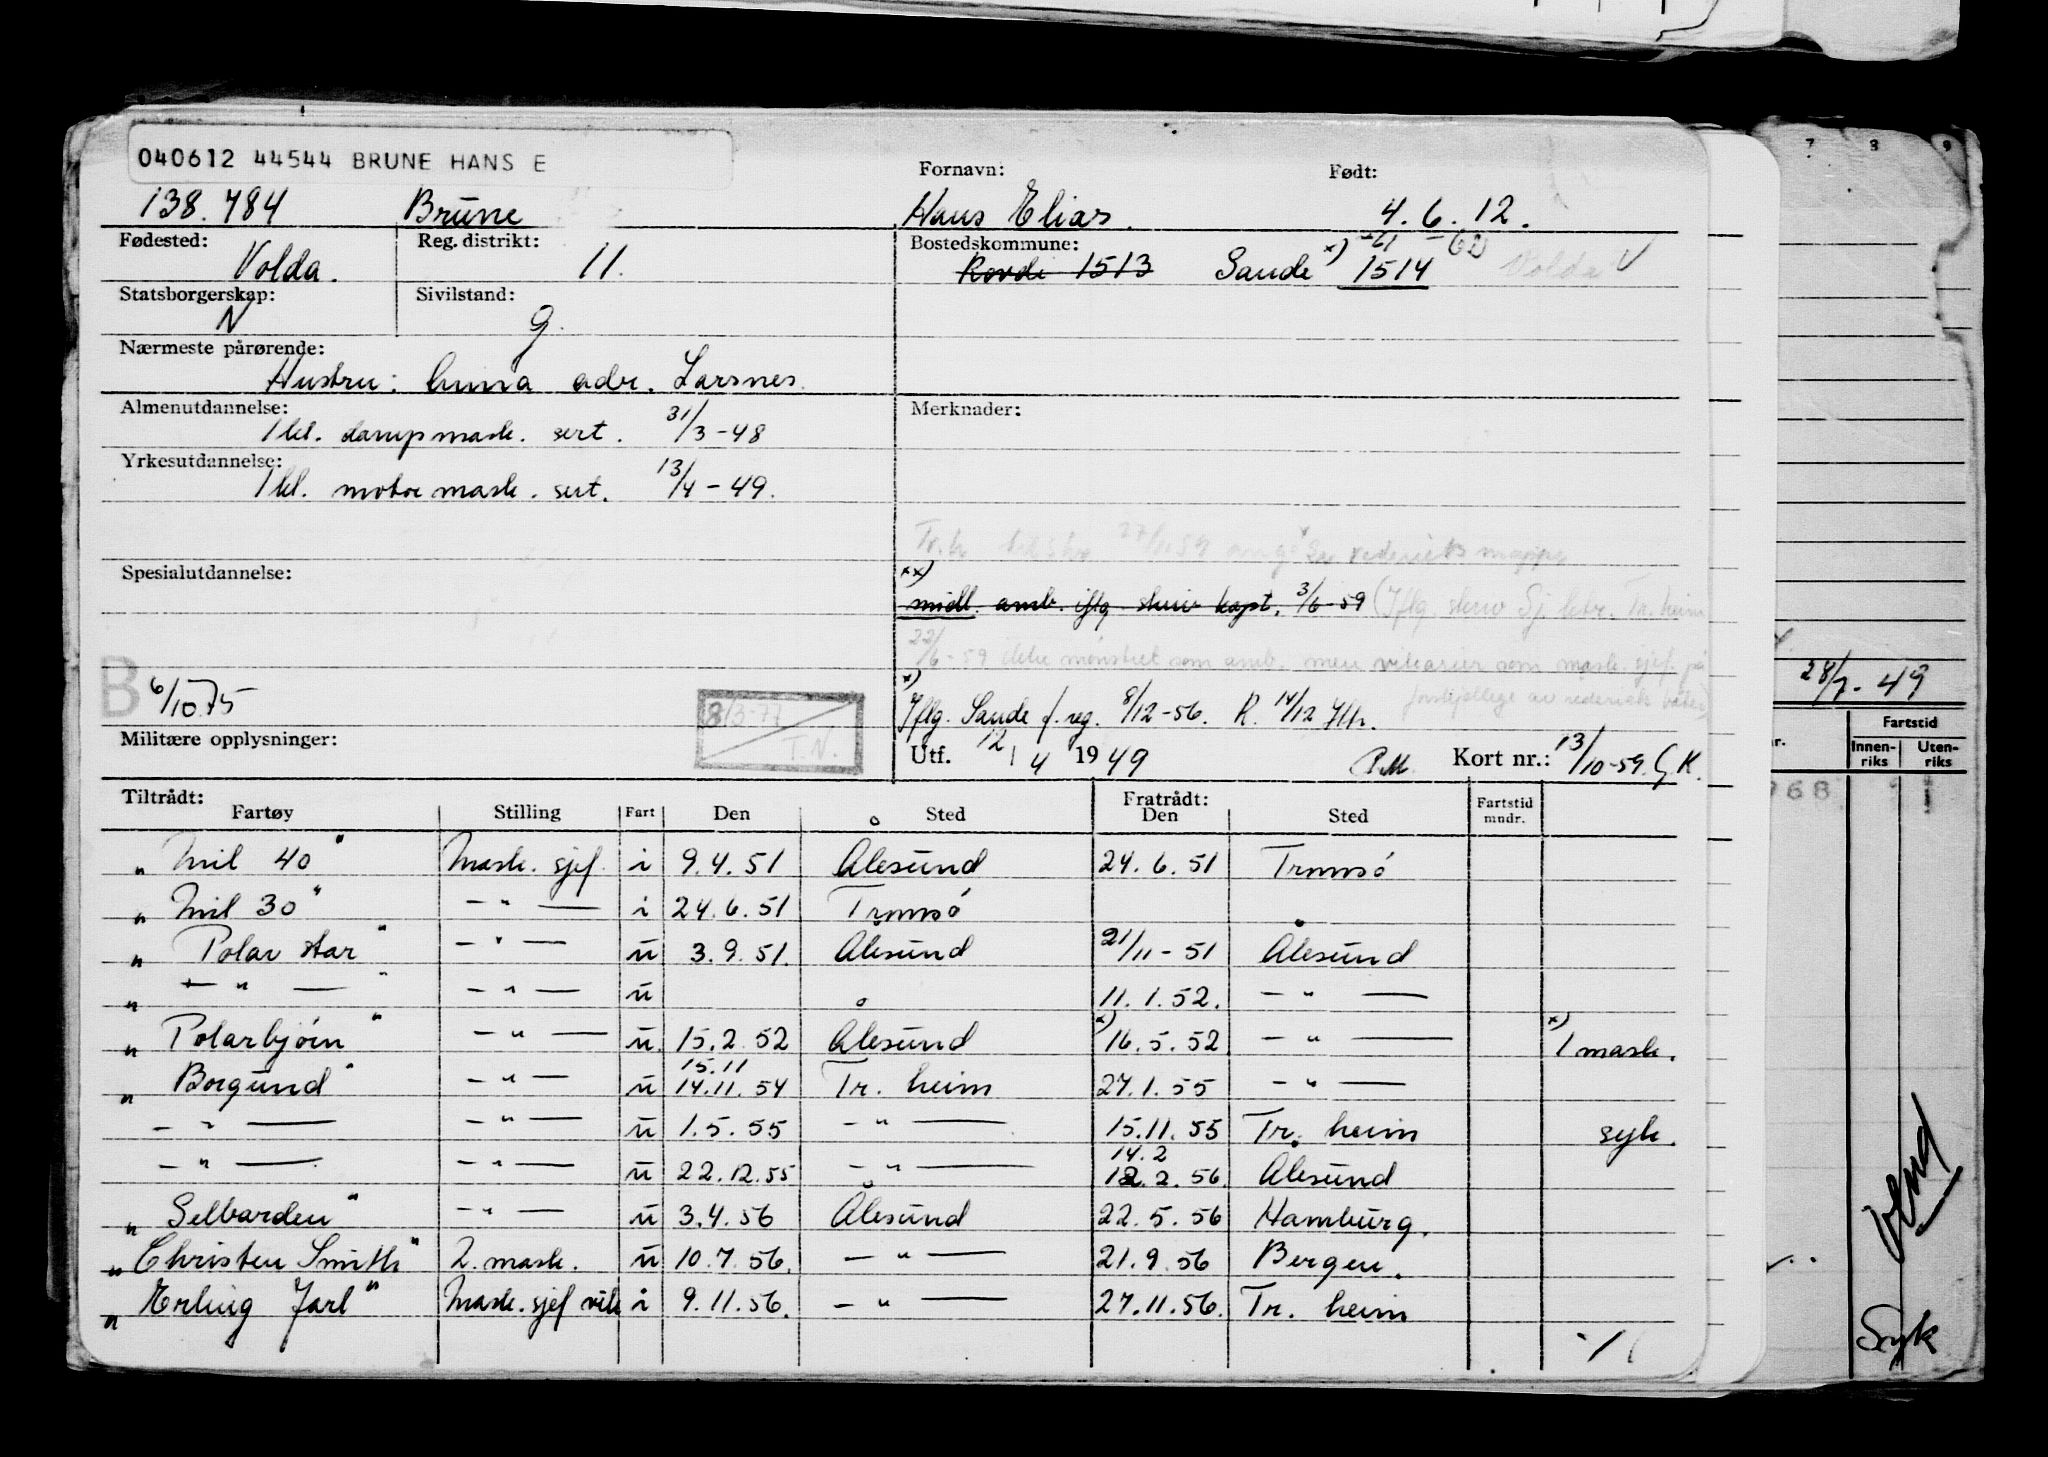 040612 44544 BRUNE HANS E
Fornavn: Født:
138.784 Brune Hans Elias. 4.6.12.
Fødested: Reg. distrikt: Bostedskommune:
Volda. 11. Rovde 1513 Sande x) 1514 Volda
Statsborgerskap: Sivilstand:
N g.
Nærmeste pårørende:
Hustru: Anna adr. Larsnes.
Almenutdannelse: Merknader:
1 kl. dampmask. sert. 31/3-48
Yrkesutdannelse:
1 kl. motormask. sert. 13/4-49.
Spesialutdannelse:
xx)
midl. amb. iflg. skriv kapt. 3/6-59 (Iflg. skriv Sj. ktr. Tr. heim
22/6-59 ikke mønstret som amb. men vikarier som mask. sjef. på
forskjellige av rederiets båter)
B 6/10 75
8/3-77
T.N.
x)
Iflg. Sande f. reg. 8/12-56. R. 14/12
Militære opplysninger:
Utf. 12/4 1949 P.M. Kort nr.: 13/10-59. G.K.
Tiltrådt: Fratrådt:
Fartøy Stilling Fart Den Sted Den Sted Fartstid mndr.
„Mil 40" Mask. sjef. i 9.4.51 Ålesund 24.6.51 Tromsö
„Mil 30" -"- i 24.6.51 Tromsö
„Polar star" -"- u 3.9.51. Ålesund 21/11-51 Ålesund
„ -"- " -"- u 11.1.52. -"-
„Polarbjörn" -"- u. 15.2.52 Ålesund x) 16.5.52 -"- x) 1 mask.
15.11
„Borgund" -"- u 14.11.54 Tr. heim 27.1.55 -"-
-"- -"- u 1.5.55 -"- 15.11.55 Tr. heim syk.
14.2
-"- -"- u 22.12.55 -"- 12.2.56. Ålesund
„Selbarden" -"- u 3.4.56 Ålesund 22.5.56 Hamburg.
„Christen Smith" 2. mask. u 10.7.56. -"- 21.9.56 Bergen.
„Erling Jarl" Mask. sjef vik i 9.11.56. -"- 27.11.56. Tr. heim
7 8 9
28/7-49
Fartstid
Innenriks Utenriks
968
Syk